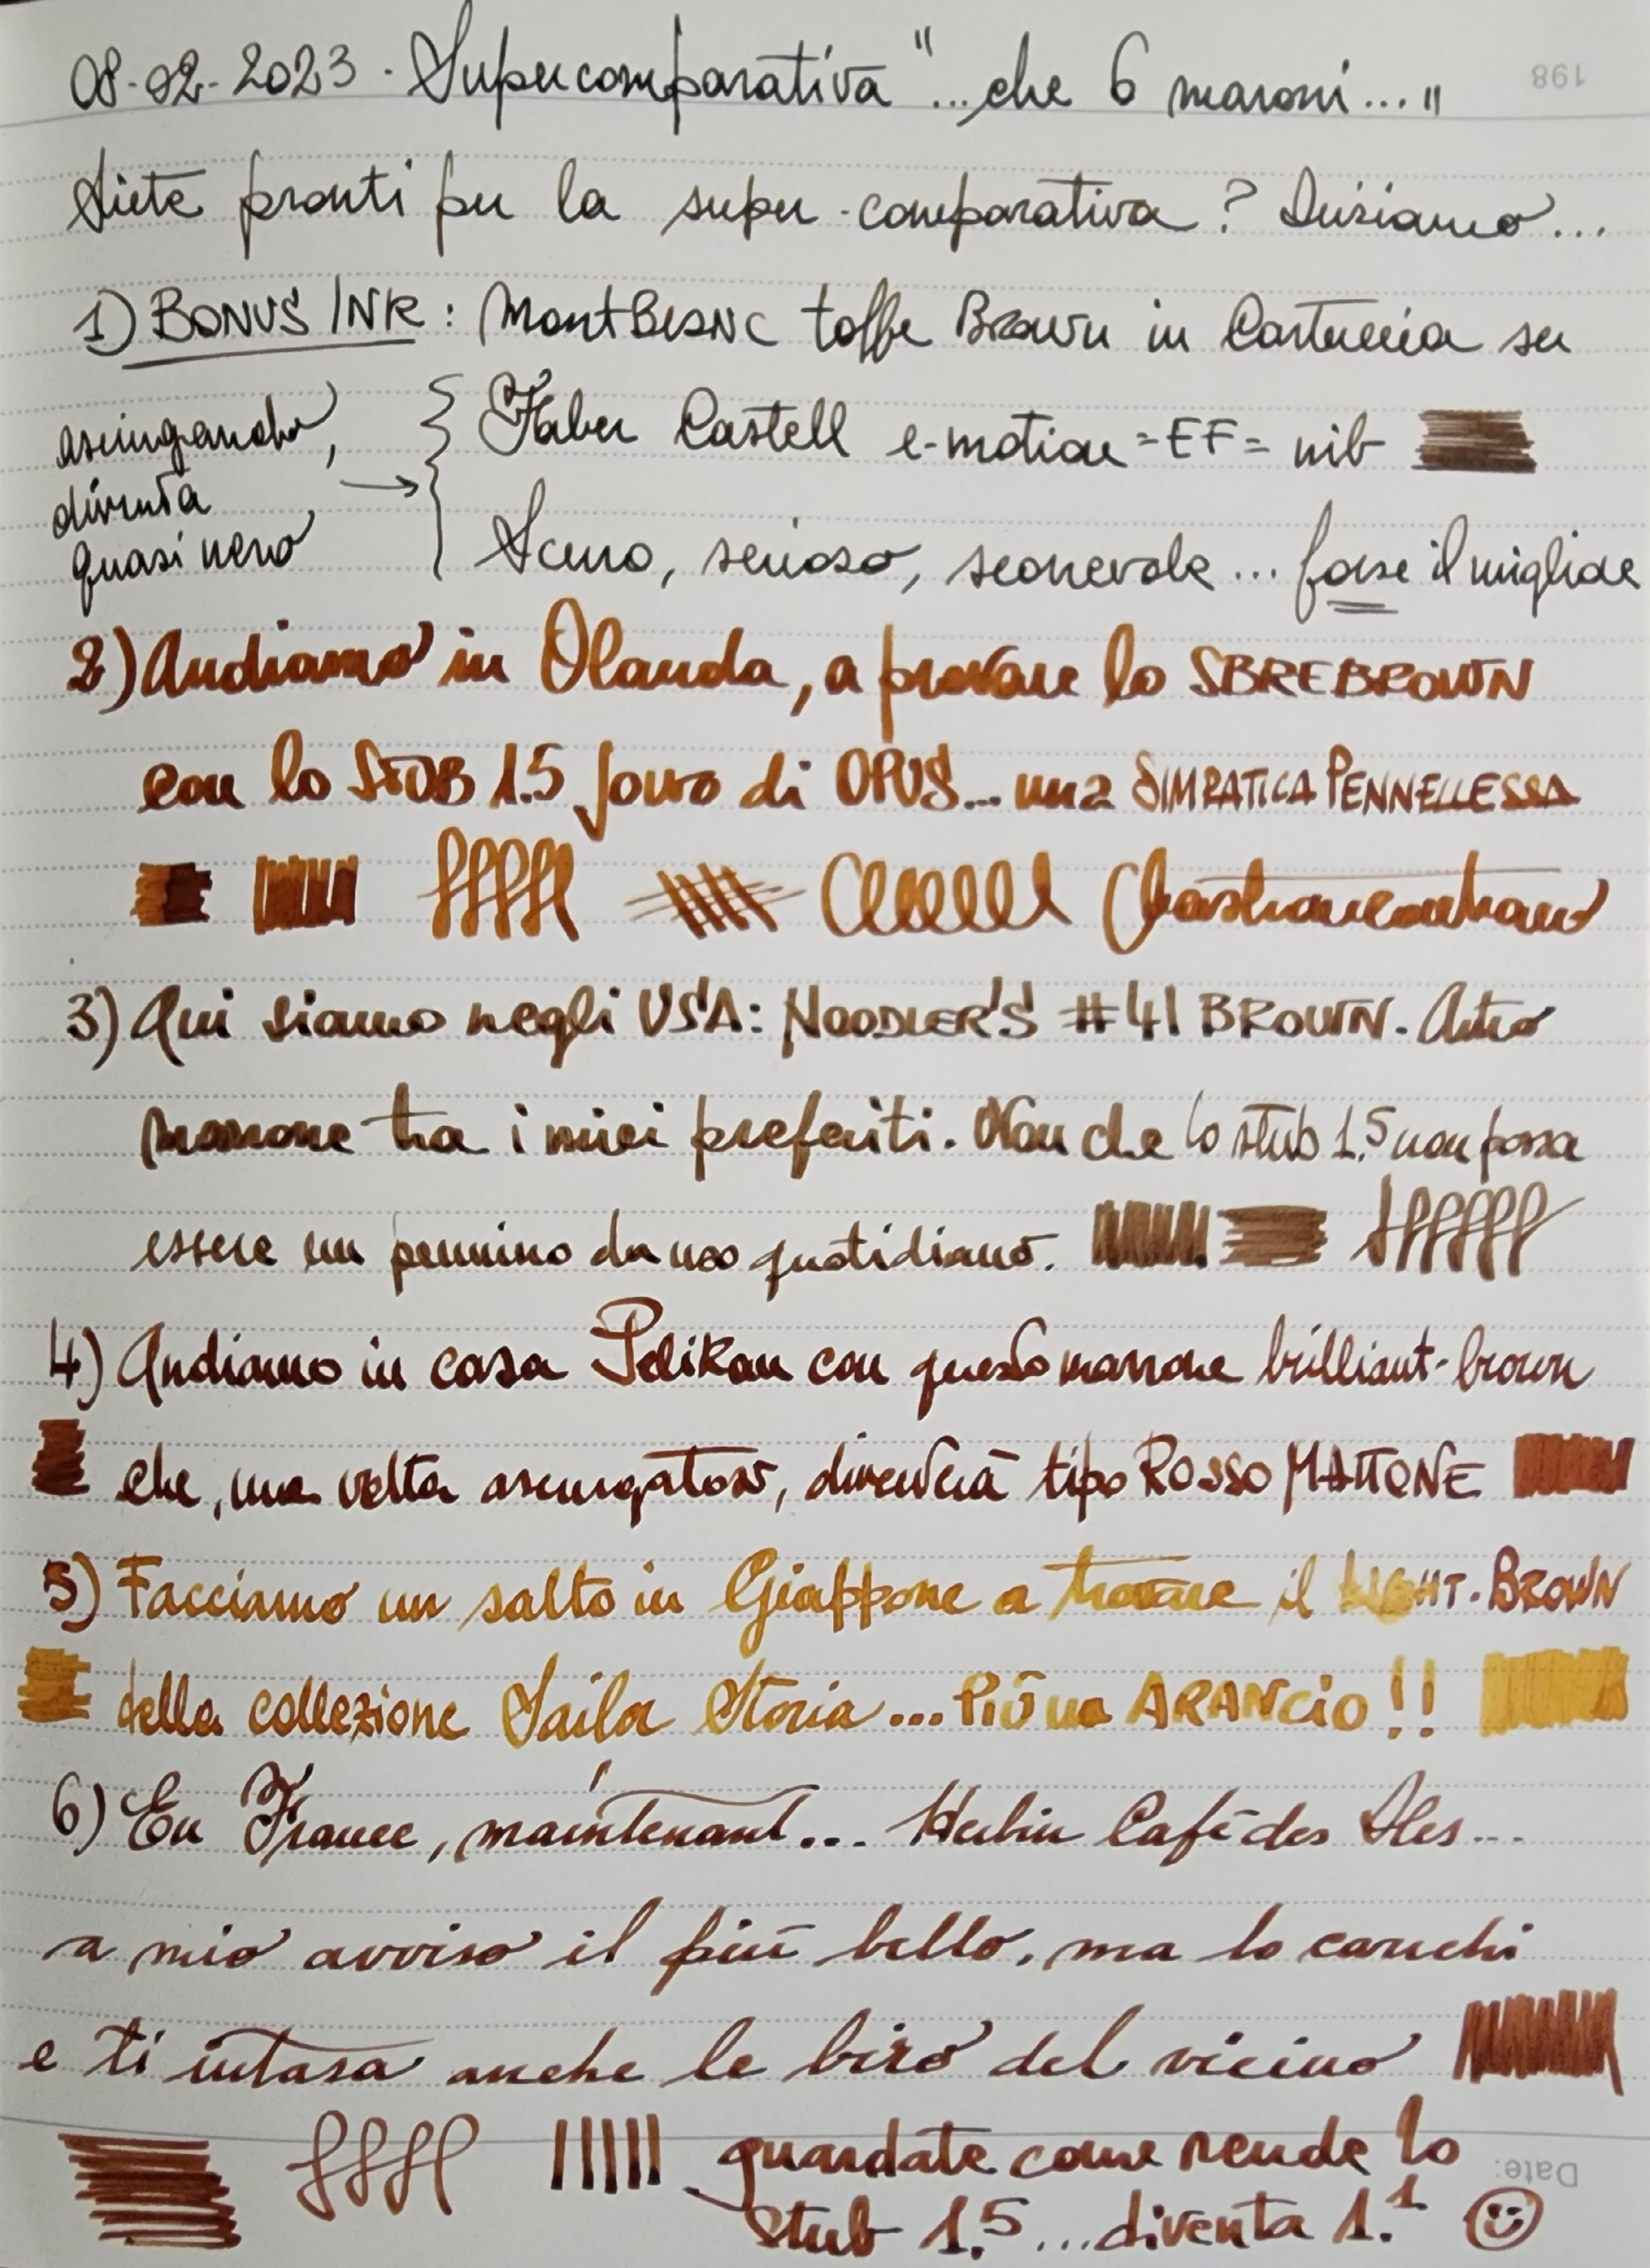 198
08-02-2023 · Supercomparativa "...che 6 maroni..."
Siete pronti per la super-comparativa? Iniziamo...
1) BONUS INK: MontBlanc toffee Brown in Cartuccia su
Faber Castell e-motion =EF= nib
asciugando,
diventa
quasi nero
Scuro, serioso, scorrevole... forse il migliore
2) Andiamo in Olanda, a provare lo SBREBROWN
con lo STUB 1.5 Jowo di OPUS... una SIMPATICA PENNELLESSA
3) Qui siamo negli USA: NOODLER'S #41 BROWN. Altro
marrone tra i miei preferiti. Non che lo stub 1.5 non possa
essere un pennino da uso quotidiano.
4) Andiamo in casa Pelikan con questo marrone brilliant-brown
che, una volta asciugatosi, diventerà tipo ROSSO MATTONE
5) Facciamo un salto in Giappone a trovare il LIGHT-BROWN
della collezione Sailor Storia... PIÙ un ARANCIO!!
6) En France, maintenant... Herbin Café des Iles...
a mio avviso il più bello, ma lo carichi
e ti intasa anche le biro del vicino
guardate come rende lo
stub 1.5 ...diventa 1.1
Date: